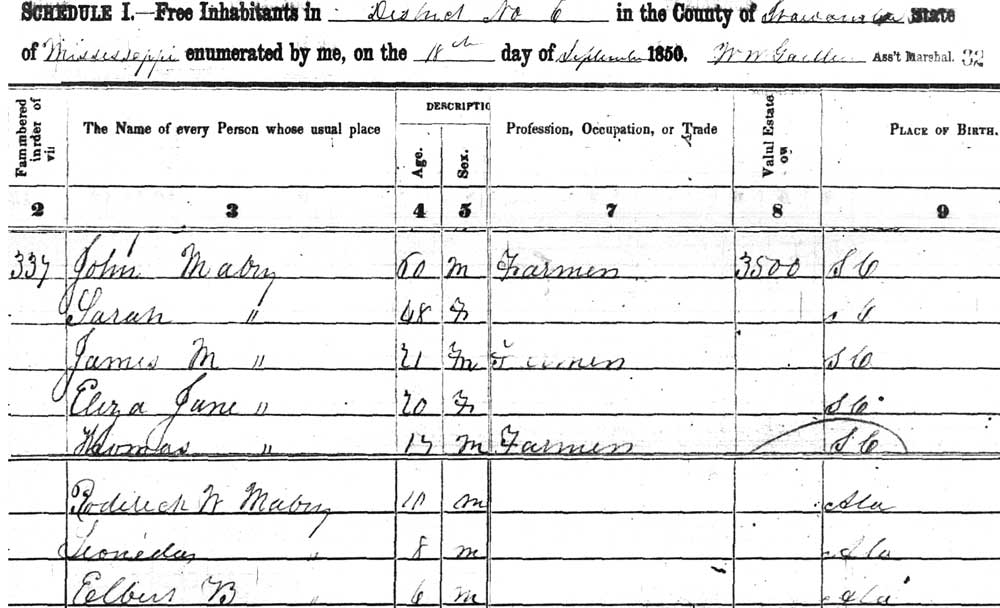 SCHEDULE I.—Free Inhabitants in District No 6 in the County of Itawamba State
of Mississippi enumerated by me, on the 18th day of September 1850. Ass't Marshal. 32
DESCRIPTIO
Fammbered in rder of vi
The Name of every Person whose usual place
Age.
Sex.
Profession, Occupation, or Trade
Valul Estate ow
PLACE OF BIRTH.
2 3 4 5 7 8 9
337 John Mabry 60 M Farmer 3500 S C
Sarah " 48 F
James M " 21 M Farmer S C
Eliza Jane " 20 F S C
Thomas " 17 M Farmer S C
Roderick W Mabry M Ala
Leonidas " 8 M Ala
Elbert B " 6 M Ala